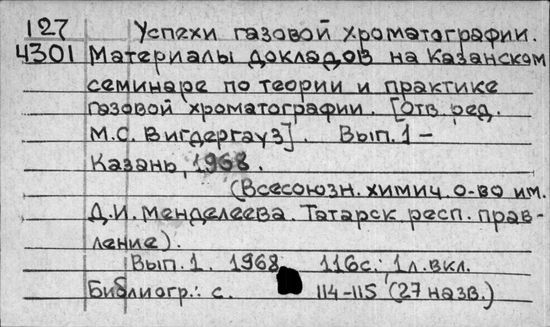 127 Успехи газовой хроматографии.
4301 Материалы докладов на Казанском
семинаре по теории и практике
газовой хроматографии. [Отв. ред.
М.С. Вигдергауз]. Вып. 1 –
Казань, 1968.
(Всесоюзн. химич. о-во им.
Д.И. Менделеева. Татарск. респ. прав-
ление).
Вып. 1. 1968. 116с.; 1л. вкл.
Библиогр.: с. 114-115 (27 назв.)